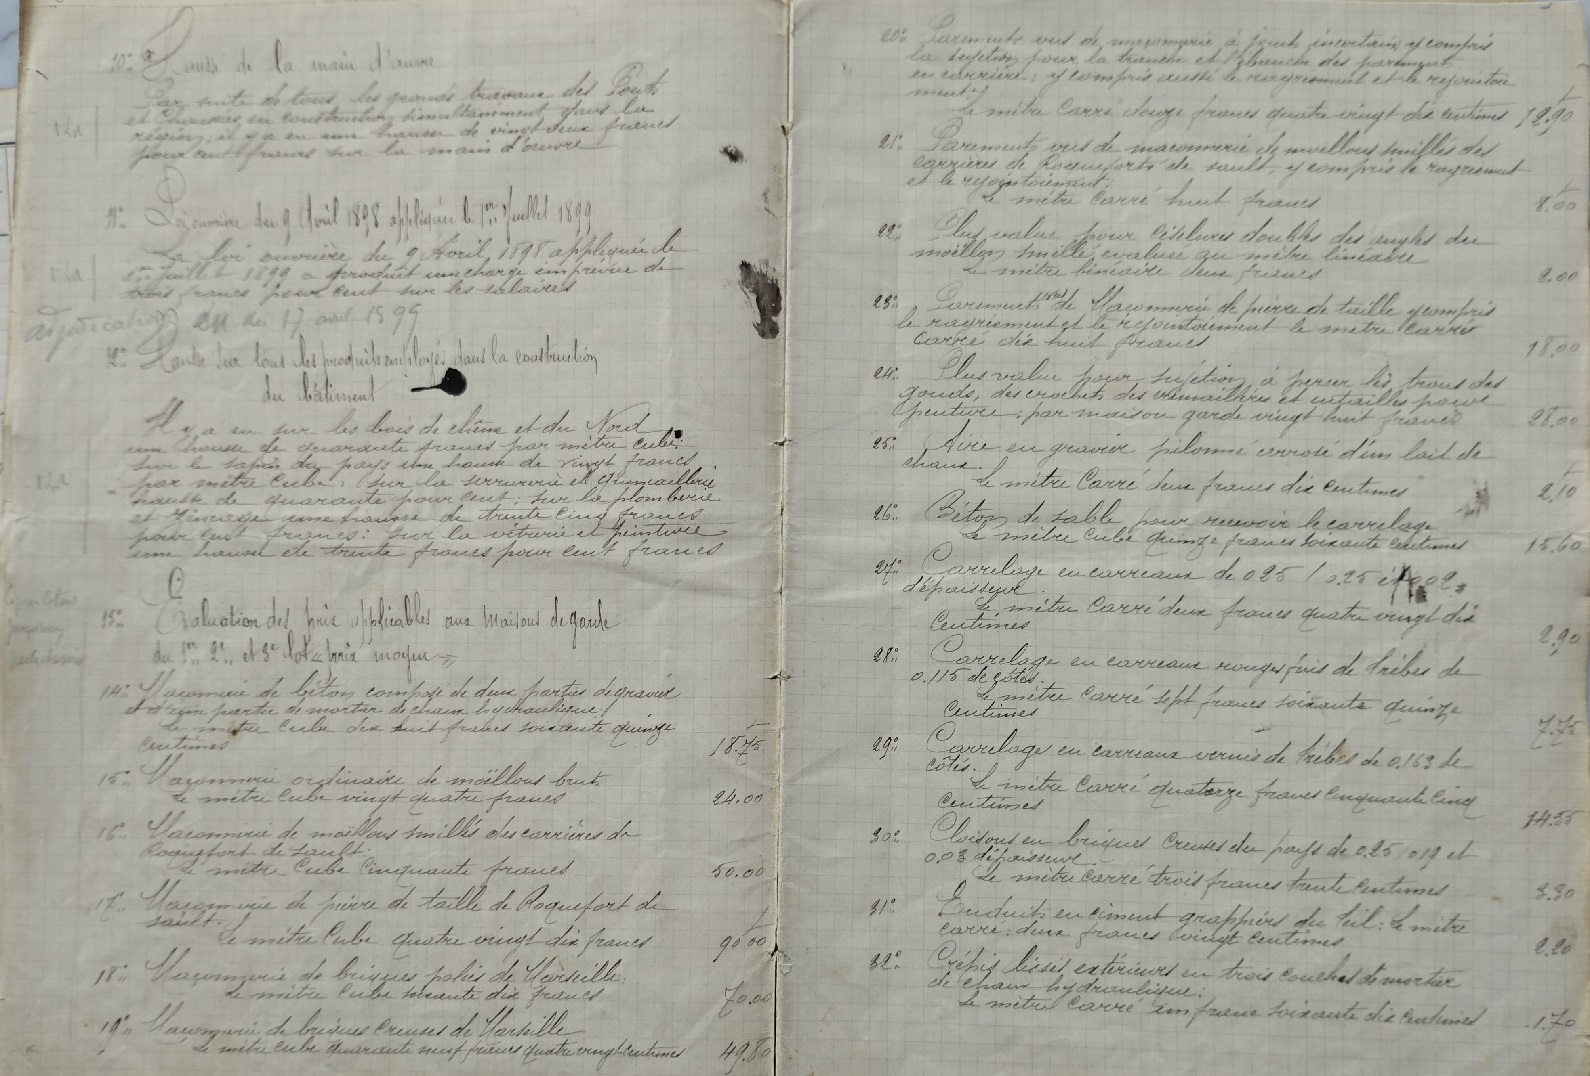 10° Hausse de la main d'œuvre
Par suite de tous les grands travaux des Ponts
et Chaussées en construction simultanément dans la
région, il y a eu une hausse de vingt deux francs
pour cent francs sur la main d'œuvre
11° Loi ouvrière du 9 Avril 1898 appliquée le 1er Juillet 1899
La loi ouvrière du 9 Avril 1898 appliquée le
1er Juillet 1899 a produit une charge imprévue de
trois francs pour cent sur les salaires
adjudication du 17 avril 1899
12° Hausse sur tous les produits employés dans la construction
du bâtiment
Il y a eu sur les bois de chêne et du Nord
une hausse de quarante francs par mètre cube;
sur le sapin du pays une hausse de vingt francs
par mètre cube: sur la serrurerie et quincaillerie
hausse de quarante pour cent; sur la plomberie
et zingage une hausse de trente cinq francs
pour cent francs: sur la vitrerie et peinture
une hausse de trente francs pour cent francs
13° Evaluation des prix applicables aux Maisons de garde
du 1er 2e et 3e lot = prix moyen =
14° Maçonnerie de béton composé de deux parties de gravier
et d'une partie de mortier de chaux hydraulique
Le mètre cube dix huit francs soixante quinze
centimes 18.75
15° Maçonnerie ordinaire de moëllons bruts
Le mètre cube vingt quatre francs 24.00
16° Maçonnerie de moëllons smillés des carrières de
Roquefort de Sault.
Le mètre cube cinquante francs 50.00
17° Maçonnerie de pierre de taille de Roquefort de
Sault.
Le mètre cube quatre vingt dix francs 90.00
18° Maçonnerie de briques pleines de Marseille.
Le mètre cube soixante dix francs 70.00
19° Maçonnerie de briques creuses de Marseille
Le mètre cube quarante neuf francs quatre vingt centimes 49.80
20° Parements vus de maçonnerie à joints incertains y compris
la sujétion pour la tranche et l'ébauche des parements
en carrière; y compris aussi le ragrément et le rejointoie
ment
Le mètre carré douze francs quatre vingt dix centimes 12.90
21° Parements vus de maçonnerie de moellons smillés des
carrières de Roquefort de Sault, y compris le ragrément
et le rejointoiement.
Le mètre carré huit francs 8.00
22° Plus value pour ciselures doubles des angles du
moëllon smillé, évalué au mètre linéaire
Le mètre linéaire deux francs 2.00
23° Parements vus de Maçonnerie de pierre de taille y compris
le ragrément et le rejointoiement le mètre carré
carré dix huit francs 18.00
24° Plus value pour sujétion à percer les trous des
gonds, des crochets des crémaillères et entailles pour
penture; par maison garde vingt huit francs 28.00
25° Aire en gravier pilonné arrosé d'un lait de
chaux.
Le mètre carré deux francs dix centimes 2.10
26° Béton de sable pour recevoir le carrelage
Le mètre cube quinze francs soixante centimes 15.60
27° Carrelage en carreaux de 0.25 / 0.25 et 0.02
d'épaisseur.
Le mètre carré deux francs quatre vingt dix
centimes 2.90
28° Carrelage en carreaux rouges fins de Trèbes de
0.115 de côtés.
Le mètre carré sept francs soixante quinze
centimes 7.75
29° Carrelage en carreaux vernis de Trèbes de 0.163 de
côtés.
Le mètre carré quatorze francs cinquante cinq
centimes 14.55
30° Cloisons en briques creuses du pays de 0.25 / 0.19 et
0.03 d'épaisseur
Le mètre carré trois francs trente centimes 3.30
31° Enduits en ciment grappiers du Teil: le mètre
carré: deux francs vingt centimes 2.20
32° Crépis lissés extérieurs en trois couches de mortier
de chaux hydraulique:
Le mètre carré un franc soixante dix centimes 1.70